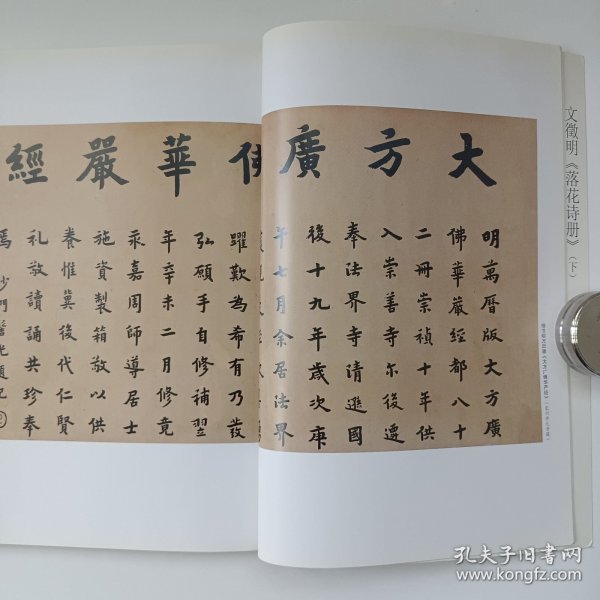 大方廣佛華嚴經
明萬曆版大方廣
佛華嚴經都八十
二冊崇禎十年供
入崇善寺尔後遷
奉法界寺清遜國
後十九年歲次庚
午七月余居法界
躍歎為希有乃發
弘願手自修補翌
年辛未二月修竟
永嘉周師導居士
施資製箱敬以供
養惟冀後代仁賢
礼敬讀誦共珍奉
焉 沙門
文徵明《落花诗册》（下）
孔夫子旧书网
www.kongfz.com